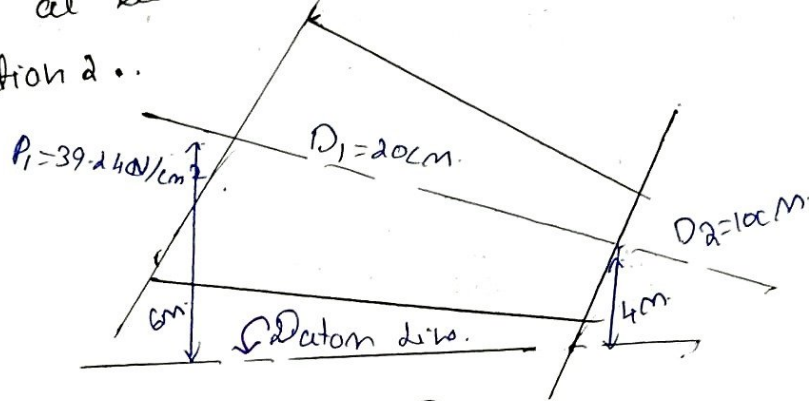 at
tion 2..
P₁=39.24N/cm²
D₁=20cm.
D2=10cm.
6m.
4m.
Datom line.